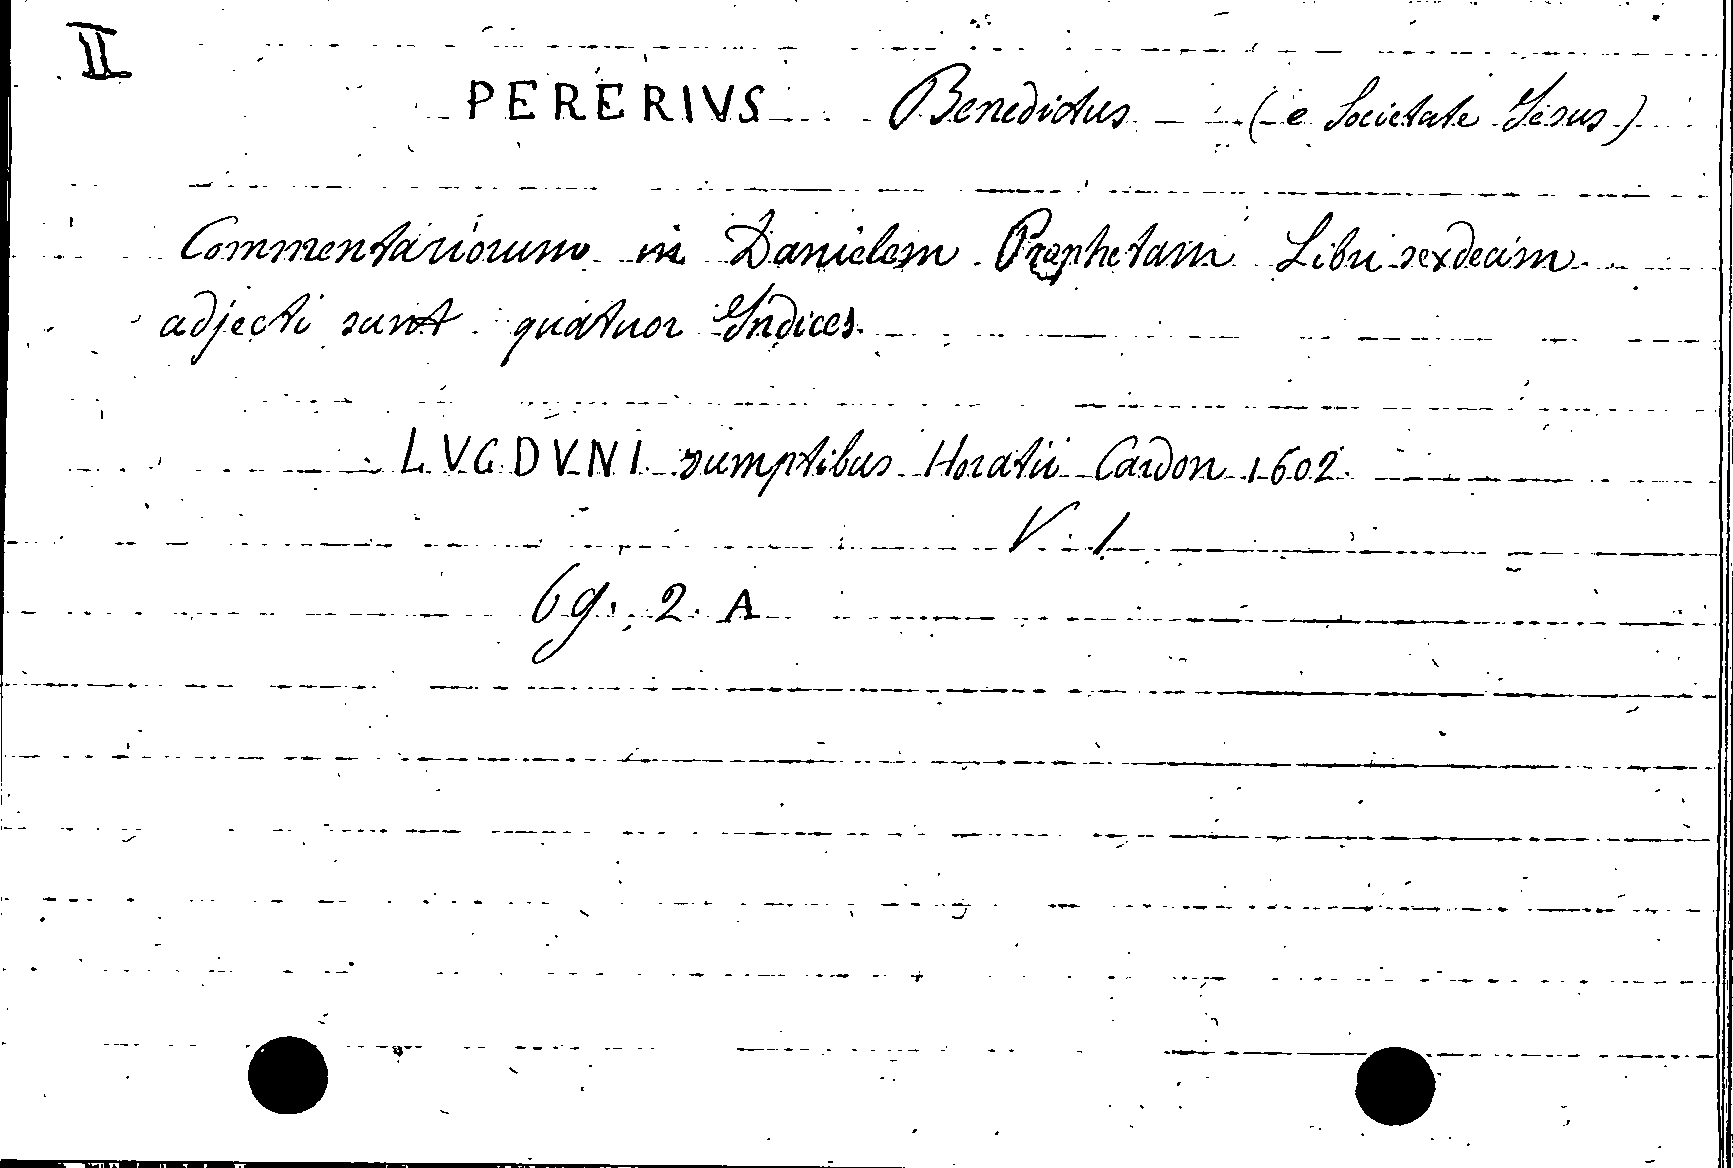 II
PERERIVS Benedictus (e Societate Jesus)
Commentariorum in Danielem Prophetam Libri sexdecim
adjecti sunt quatuor Indices.
LVGDVNI sumptibus Horatii Cardon 1602.
V. 1
69. 2. A